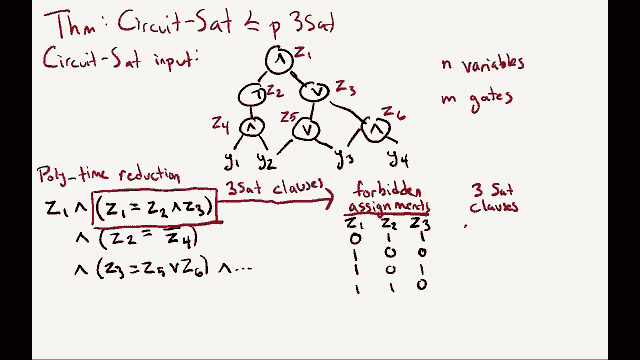 Thm: Circuit-Sat ≤ p 3Sat
Circuit-Sat input:
∧ Z1
¬ Z2
∨ Z3
Z4 ∧
Z5 ∨
∧ Z6
y1 y2 y3 y4
n variables
m gates
Poly-time reduction
Z1 ∧ (Z1 = Z2 ∧ Z3)
∧ (Z2 = Z̅4)
∧ (Z3 = Z5 ∨ Z6) ∧ ...
3Sat clauses
forbidden
assignments
Z1 Z2 Z3
0 1 1
1 0 0
1 0 1
1 1 0
3 Sat
clauses